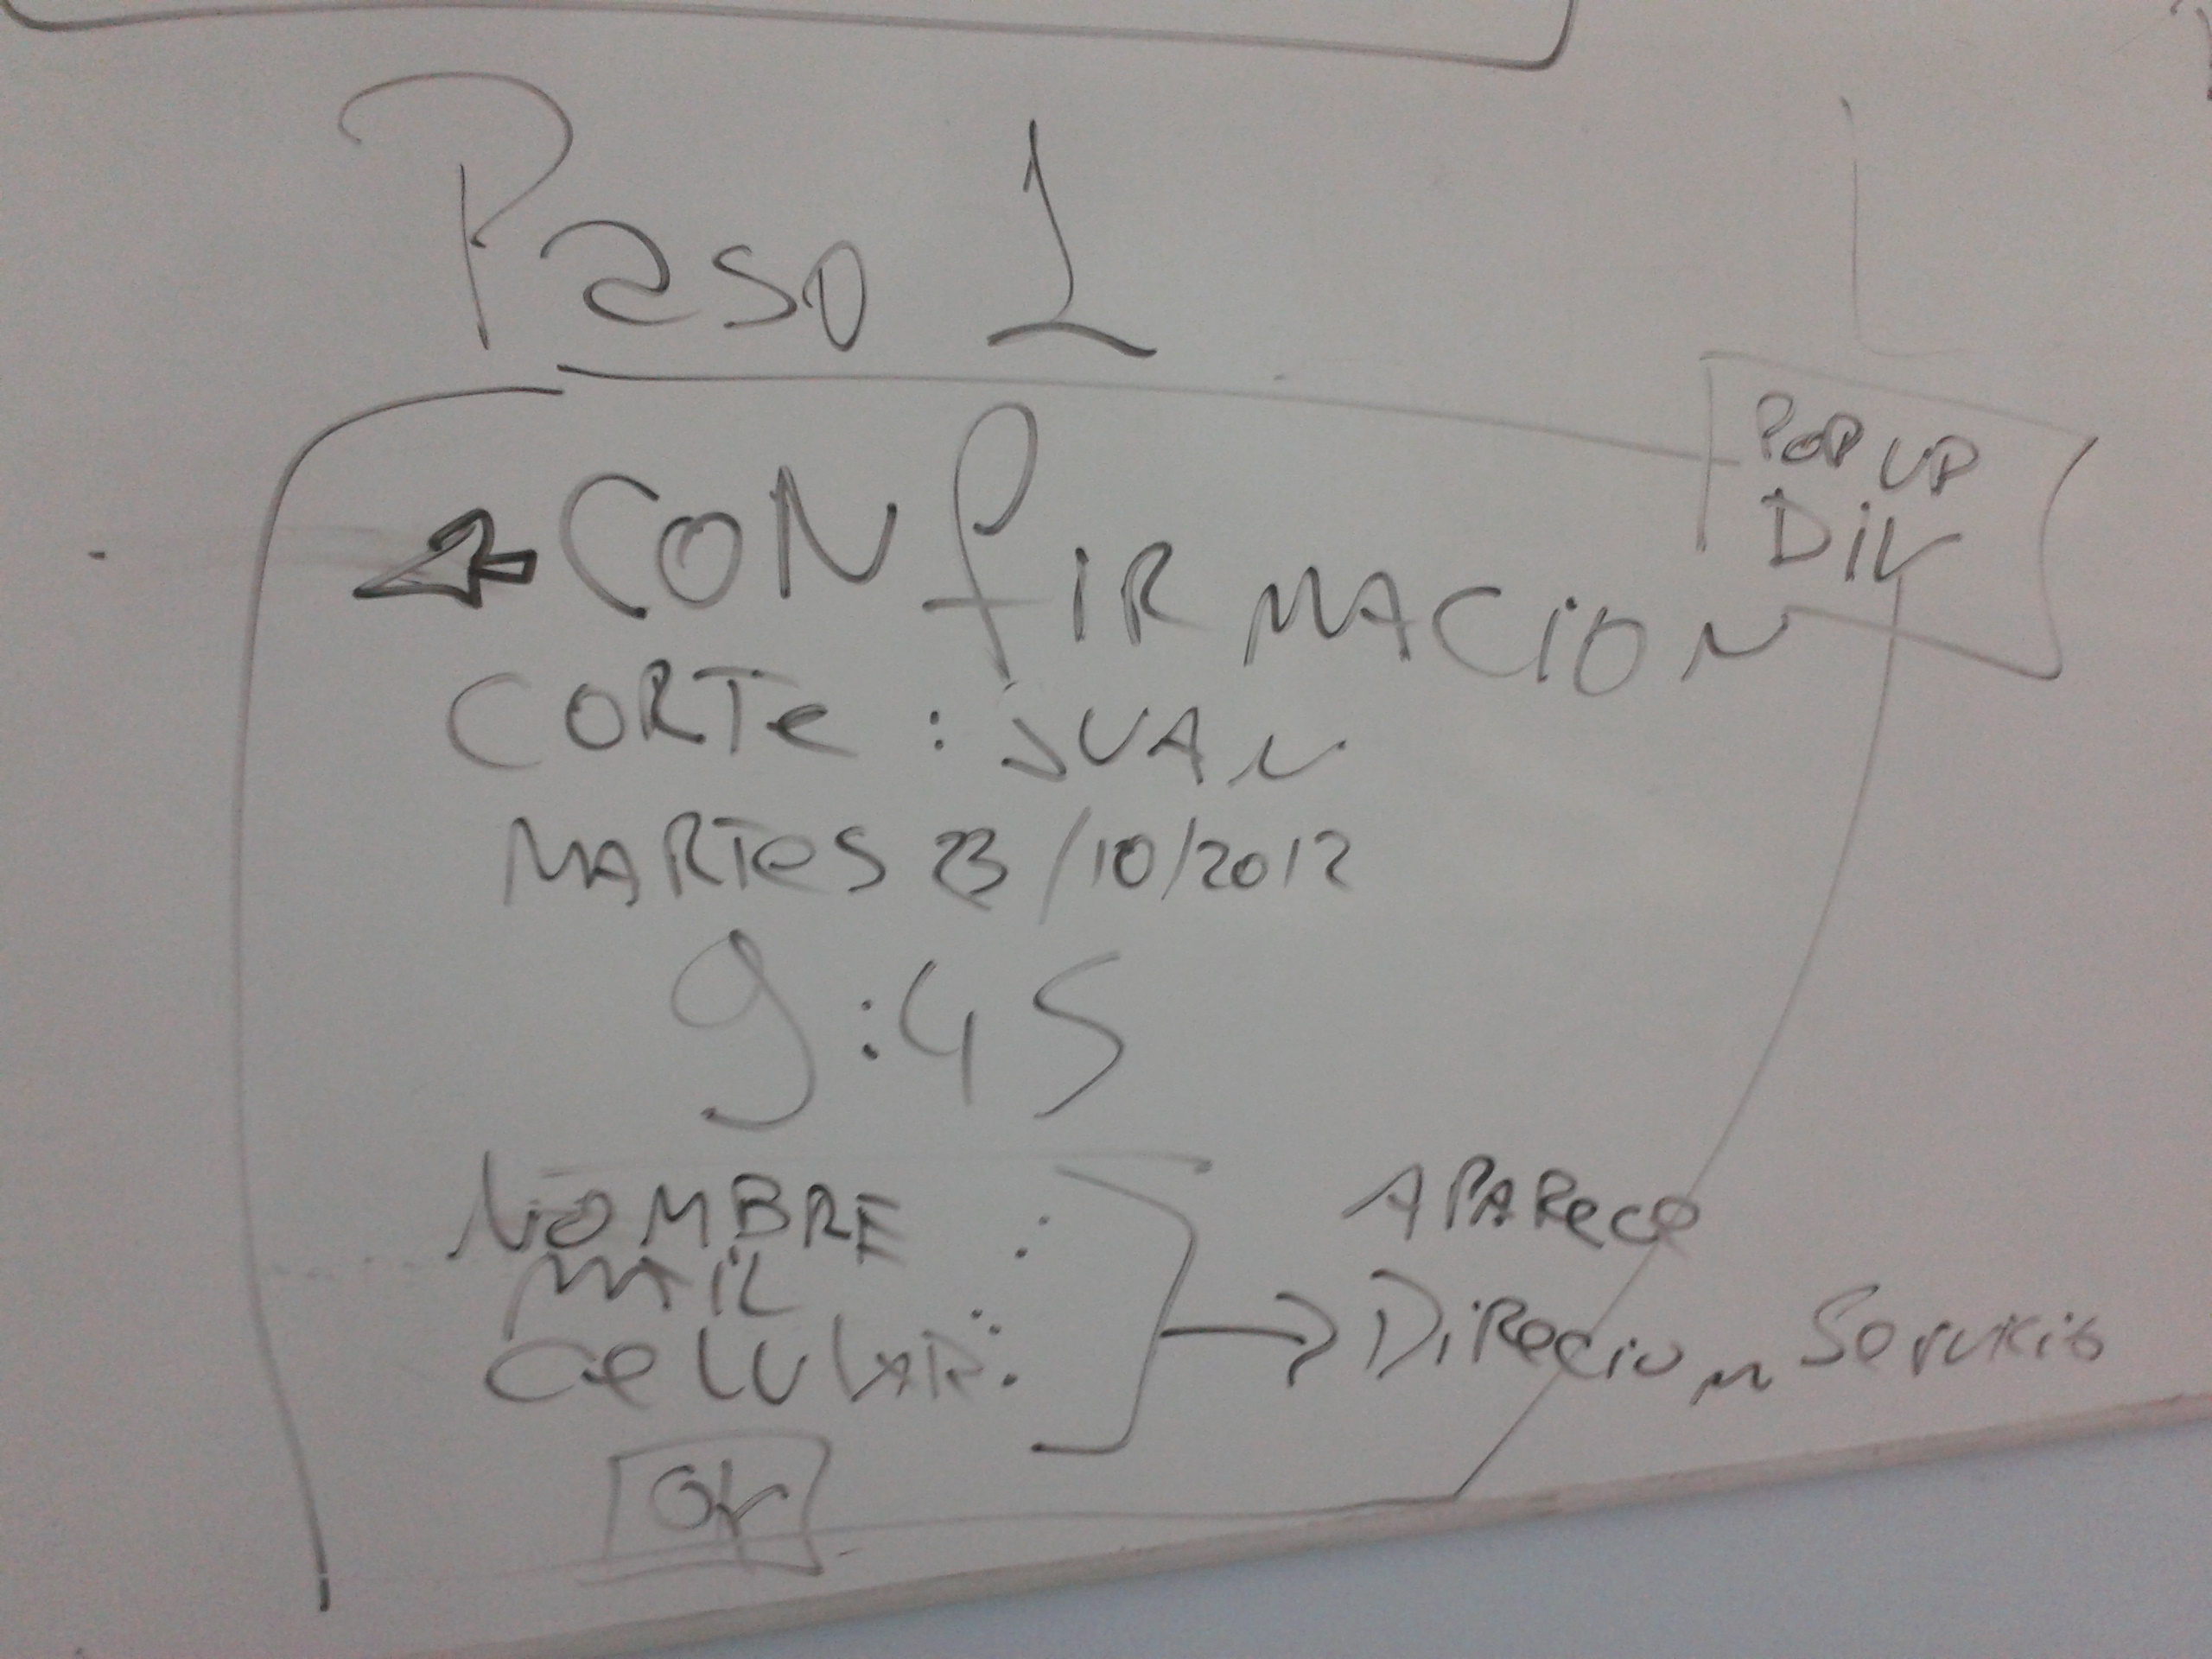 Paso 1
POP UP
DIV
CONfIRMACION
CORTe : JUAN
MARTeS 23/10/2012
9:45
NOMBRE :
MAIL :
CeLULAR:
APAReCe
DiRecion Servicio
OK